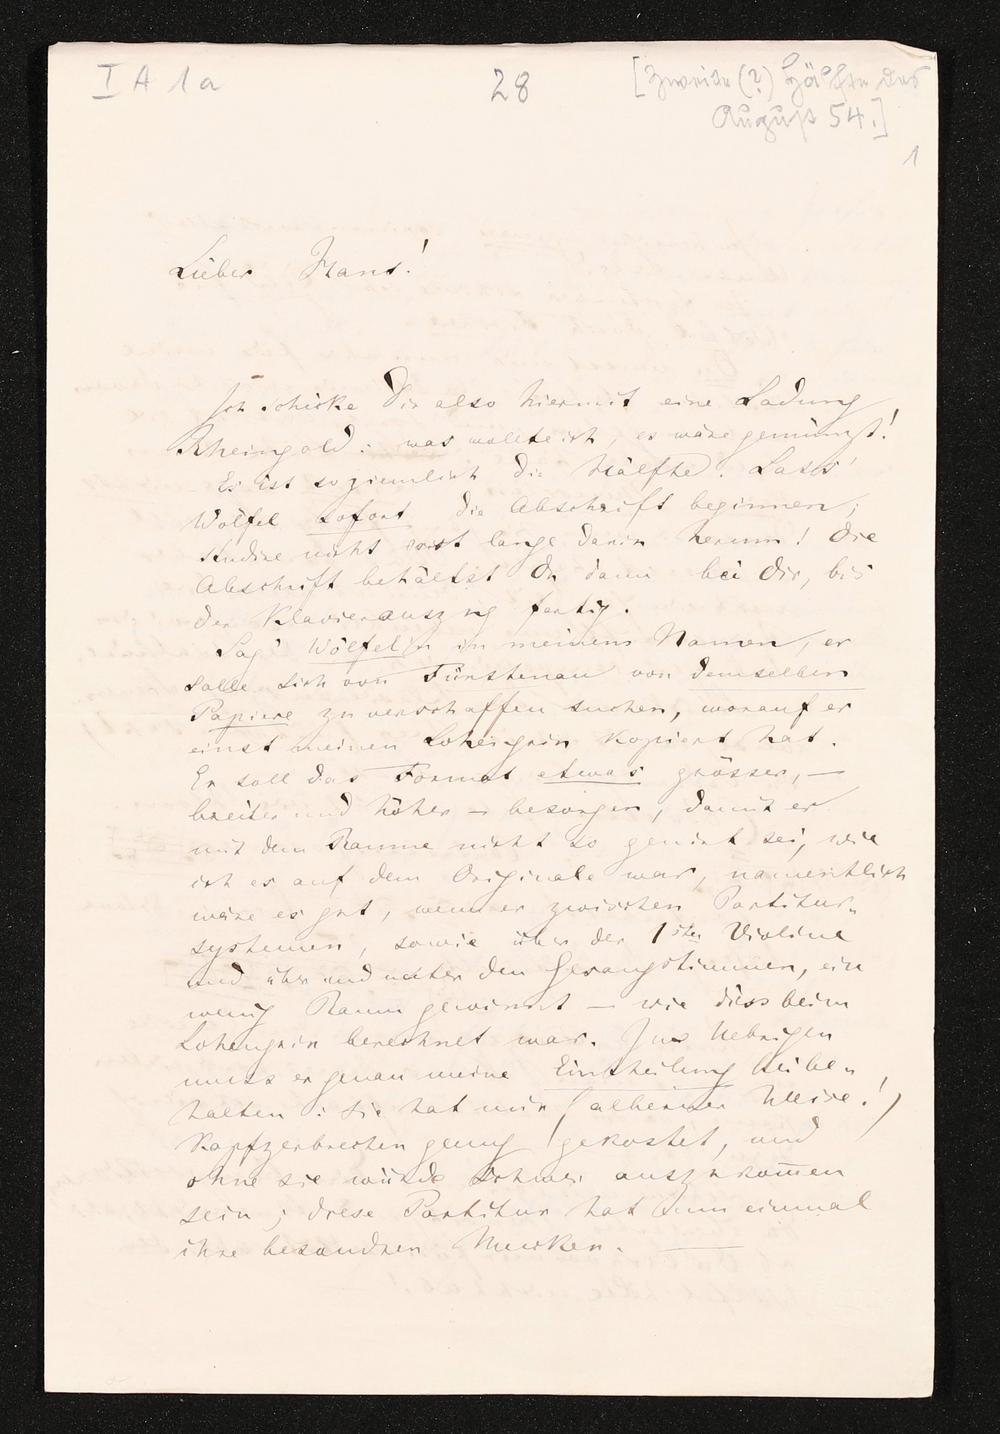 I A 1a
28
[Zweite (?) Hälfte des
August 54.]
1
Lieber Hans!
Ich schicke Dir also hiermit eine Ladung
Rheingold: was wollte ich, es wäre gemünzt!
Es ist so ziemlich die Hälfte. Lass'
Wölfel sofort die Abschrift beginnen;
studire nicht erst lange darin herum! Die
Abschrift behältst Du dann bei Dir, bis
der Klavierauszug fertig.
Sag' Wölfeln in meinem Namen, er
solle sich von Fürstenau von demselben
Papiere zu verschaffen suchen, worauf er
einst meinen Lohengrin kopiert hat.
Er soll das Format etwas grösser, —
breiter und höher — besorgen, damit er
mit dem Raume nicht so genirt sei, wie
ich es auf dem Originale war, namentlich
wäre es gut, wenn er zwischen Partitur-
systemen, sowie über der 1sten Violine
und über und unter den Gesangstimmen, ein
wenig Raum gewinnt — wie diess beim
Lohengrin berechnet war. Im Uebrigen
muss er genau meine Eintheilung beibe-
halten: sie hat mir (alberner Weise!)
Kopfzerbrechen genug gekostet, und
ohne sie würde schwer auszukommen
sein; diese Partitur hat nun einmal
ihre besondren Mucken. —